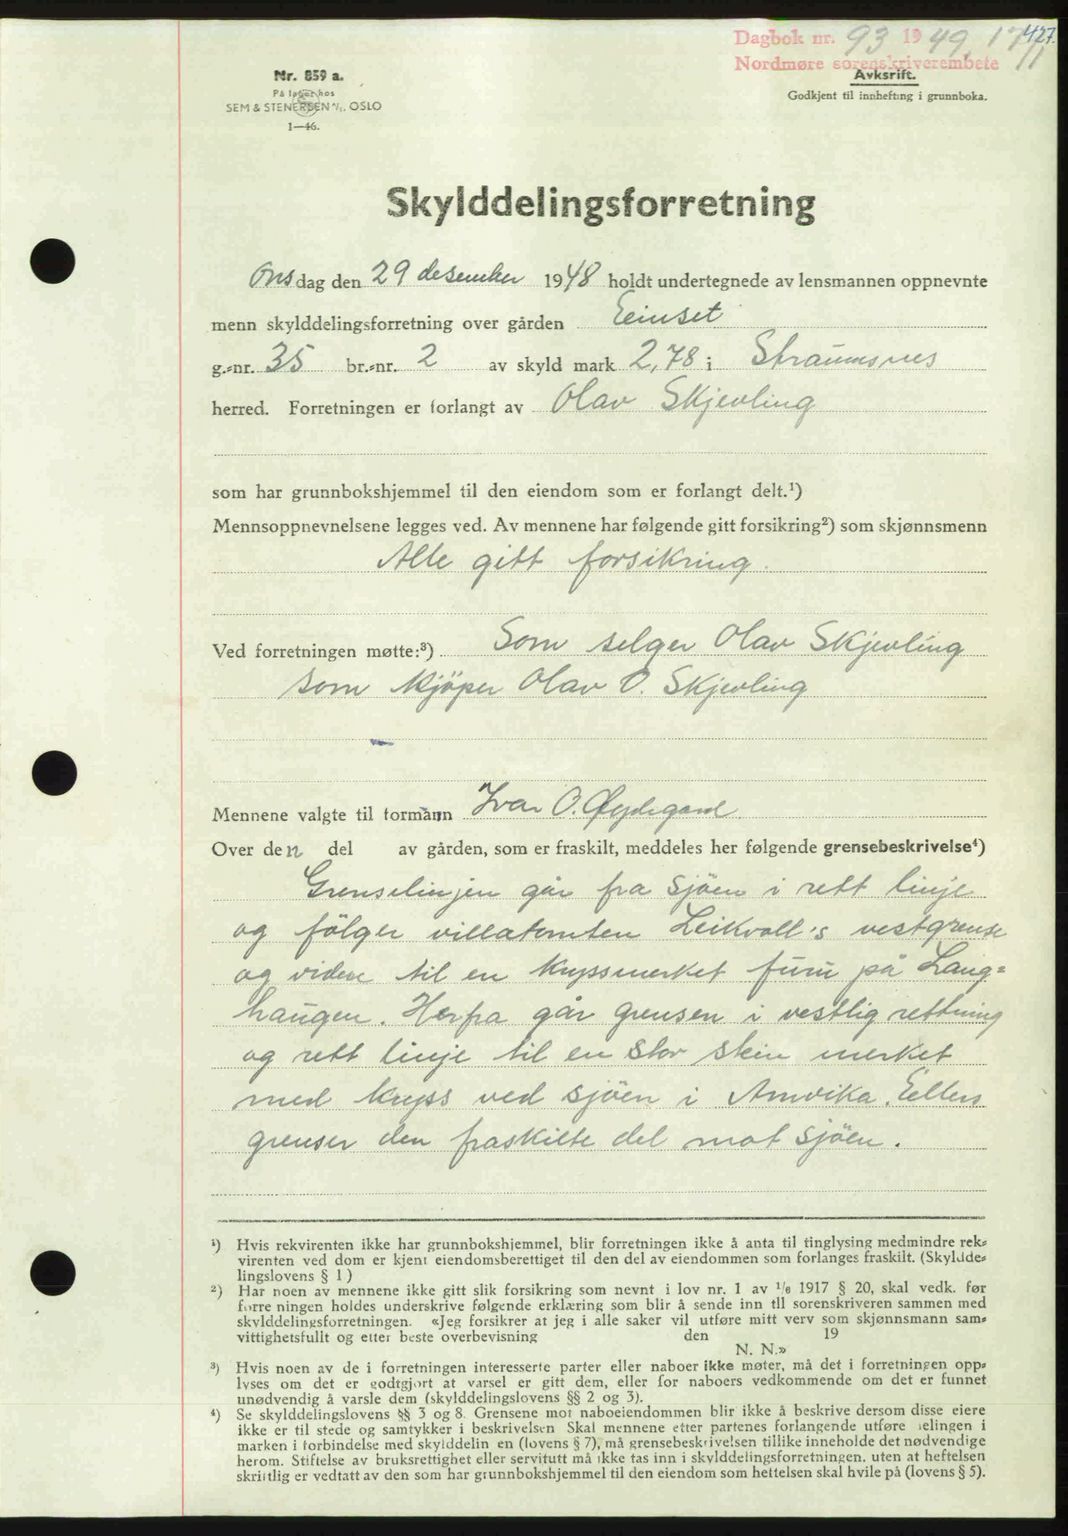 Dagbok nr. 93 1949 17/1 427.
Nordmøre sorenskriverembete
Nr. 859 a.
På lager hos
SEM & STENERSEN A/S. OSLO
1—46.
Avksrift.
Godkjent til innhefting i grunnboka.
Skylddelingsforretning
Onsdag den 29 desember 1948 holdt undertegnede av lensmannen oppnevnte
menn skylddelingsforretning over gården Eeinset
g.-nr. 35 br.-nr. 2 av skyld mark 2,78 i Straumsnes
herred. Forretningen er forlangt av Olav Skjevling
som har grunnbokshjemmel til den eiendom som er forlangt delt.¹)
Mennsoppnevnelsene legges ved. Av mennene har følgende gitt forsikring²) som skjønnsmenn
Alle gitt forsikring.
Ved forretningen møtte:³) Som selger Olav Skjevling
som kjöper Olav O. Skjevling
Mennene valgte til formann Ivar O. Øydegard
Over den del av gården, som er fraskilt, meddeles her følgende grensebeskrivelse⁴)
Grenselinjen går fra sjöen i rett linje
og fölger villatomten Leikvoll's vestgrense
og videre til en kryssmerket furu på Lang=
haugen. Herfra går grensen i vestlig rettning
og rett linje til en stor stein merket
med kryss ved sjöen i Arnvika. Ellers
grenser den fraskilte del mot sjöen.
¹) Hvis rekvirenten ikke har grunnbokshjemmel, blir forretningen ikke å anta til tinglysing medmindre rek-
virenten ved dom er kjent eiendomsberettiget til den del av eiendommen som forlanges fraskilt. (Skyldde-
lingslovens § 1)
²) Har noen av mennene ikke gitt slik forsikring som nevnt i lov nr. 1 av 1/6 1917 § 20, skal vedk. før
forretningen holdes underskrive følgende erklæring som blir å sende inn til sorenskriveren sammen med
skylddelingsforretningen. «Jeg forsikrer at jeg i alle saker vil utføre mitt verv som skjønnsmann sam-
vittighetsfullt og etter beste overbevisning den 19
N. N.»
³) Hvis noen av de i forretningen interesserte parter eller naboer ikke møter, må det i forretningen opp-
lyses om det er godtgjort at varsel er gitt dem, eller for naboers vedkommende om det er funnet
unødvendig å varsle dem (skylddelingslovens §§ 2 og 3).
⁴) Se skylddelingslovens §§ 3 og 8. Grensene mot naboeiendommen blir ikke å beskrive dersom disse eiere
ikke er til stede og samtykker i beskrivelsen Skal mennene etter partenes forlangende utføre delingen i
marken i forbindelse med skylddelingen (lovens § 7), må grensebeskrivelsen tillike inneholde det nødvendige
herom. Stiftelse av bruksrettighet eller servitutt må ikke tas inn i skylddelingsforretningen, uten at heftelsen
skriftlig er vedtatt av den som har grunnbokshjemmel til den eiendom som heftelsen skal hvile på (lovens § 5).